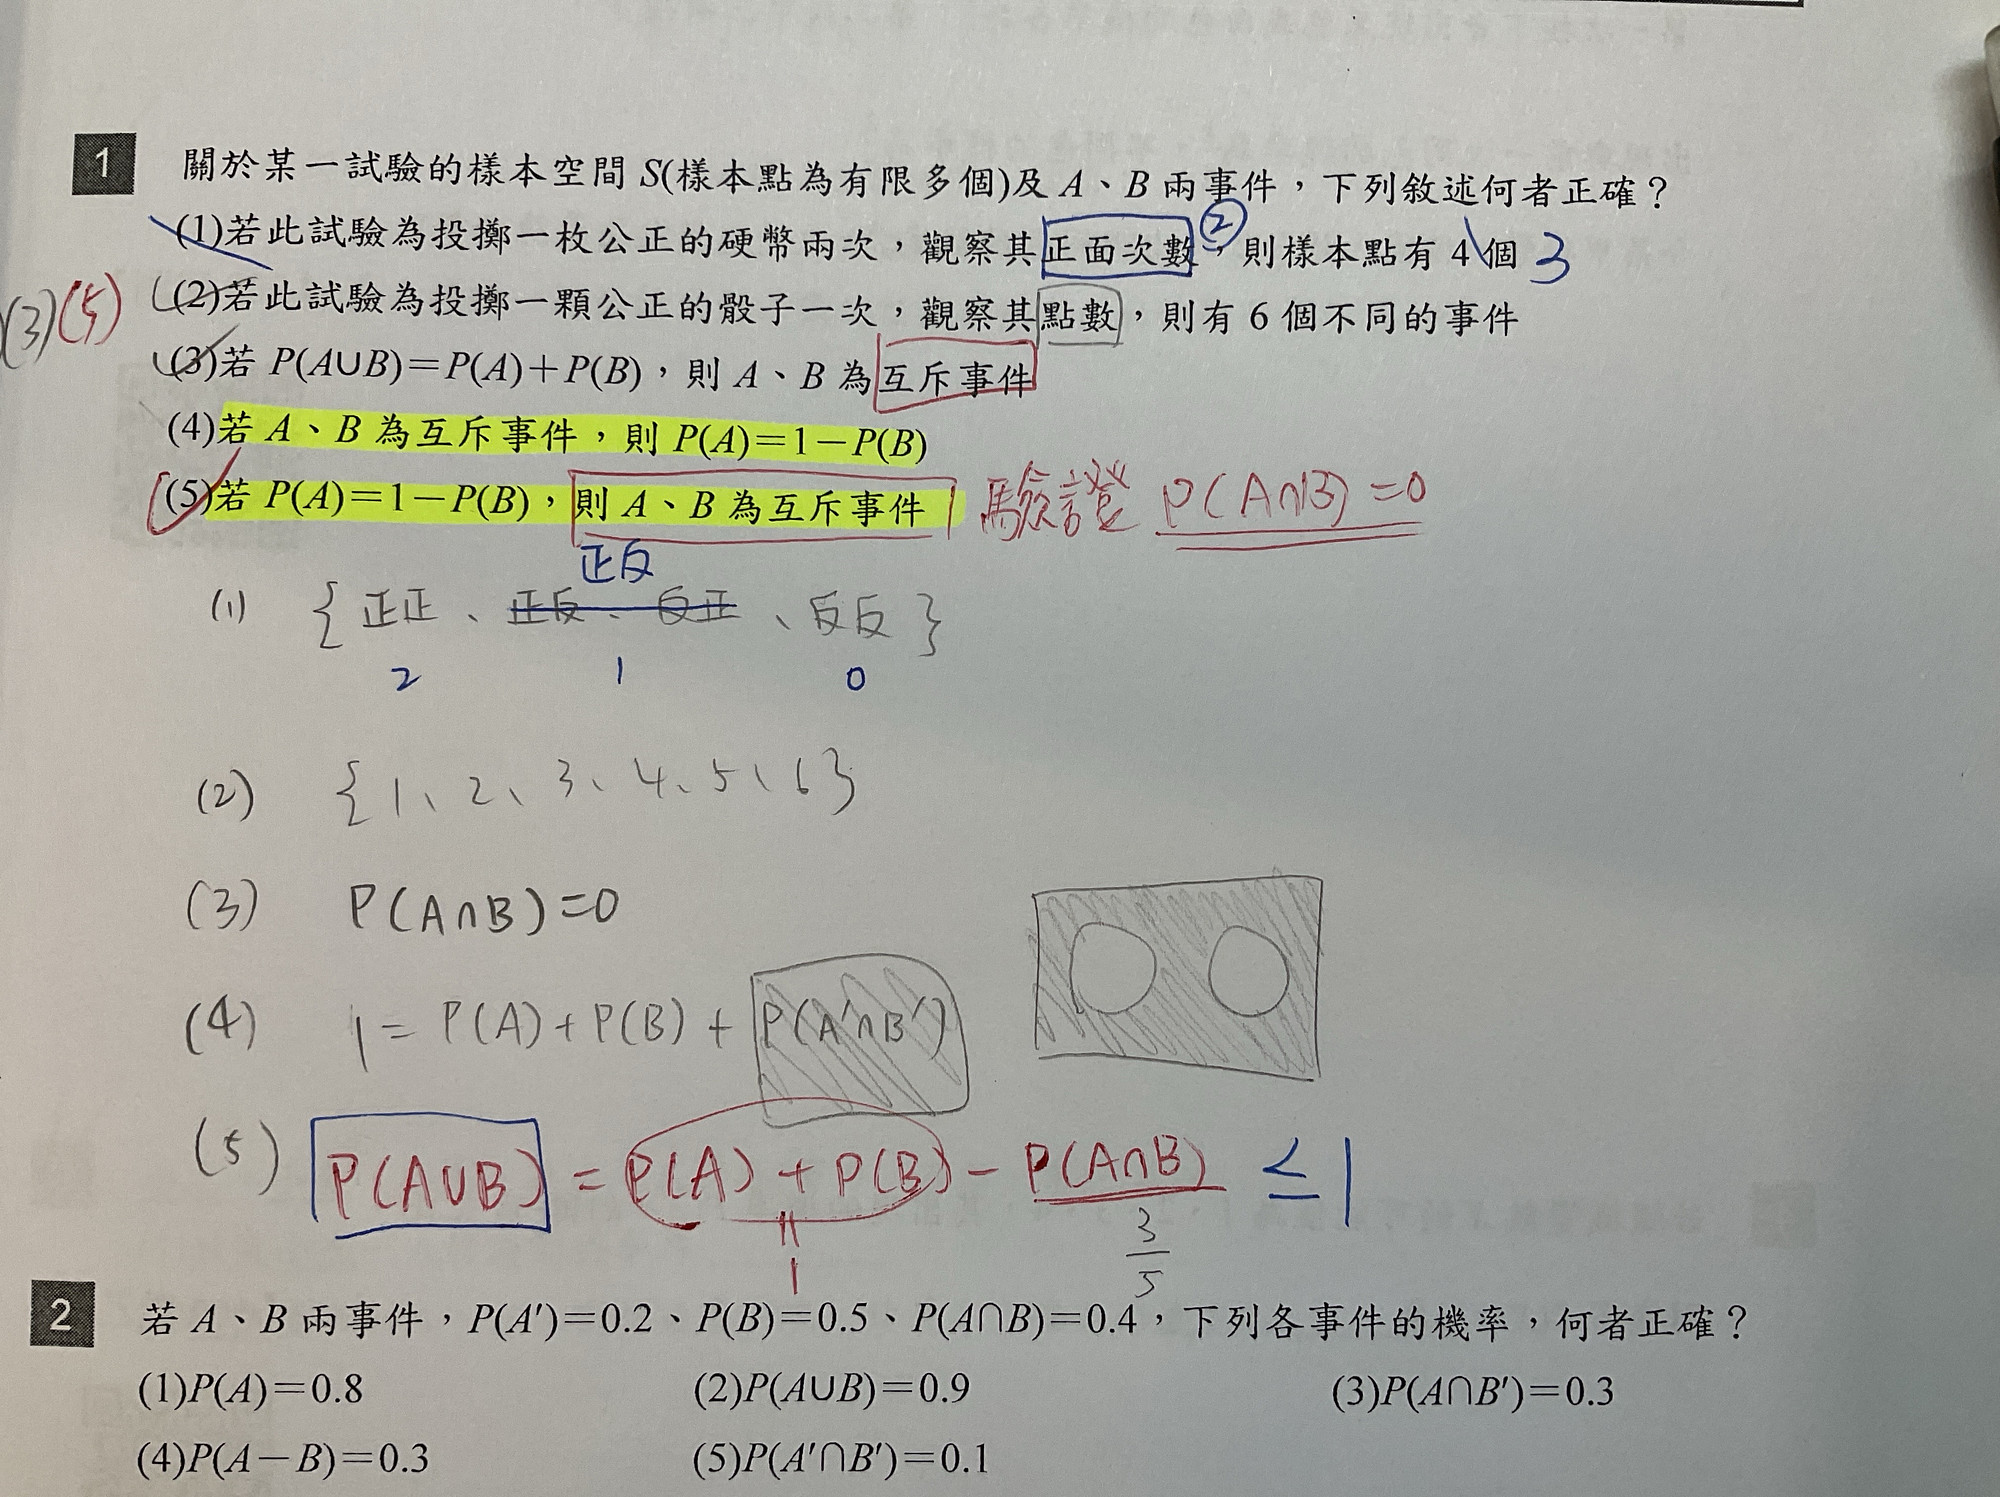 1 關於某一試驗的樣本空間 S(樣本點為有限多個)及 A、B 兩事件,下列敘述何者正確?
(1)若此試驗為投擲一枚公正的硬幣兩次,觀察其正面次數,則樣本點有 4 個 3
②
(3)(5)
(2)若此試驗為投擲一顆公正的骰子一次,觀察其點數,則有 6 個不同的事件
(3)若 P(A∪B)=P(A)+P(B),則 A、B 為互斥事件
(4)若 A、B 為互斥事件,則 P(A)=1-P(B)
(5)若 P(A)=1-P(B),則 A、B 為互斥事件 驗證 P(A∩B)=0
正反
(1) {正正、正反、反正、反反}
2 1 0
(2) {1、2、3、4、5、6}
(3) P(A∩B)=0
(4) 1=P(A)+P(B)+P(A'∩B')
(5) P(A∪B)=P(A)+P(B)-P(A∩B)≤1
=
1
3/5
2 若 A、B 兩事件,P(A')=0.2、P(B)=0.5、P(A∩B)=0.4,下列各事件的機率,何者正確?
(1)P(A)=0.8 (2)P(A∪B)=0.9 (3)P(A∩B')=0.3
(4)P(A-B)=0.3 (5)P(A'∩B')=0.1